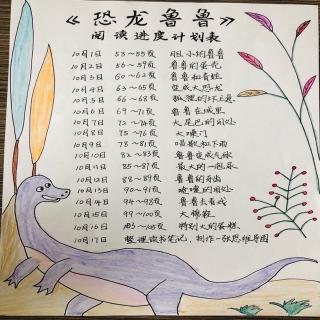 《恐龙鲁鲁》
阅读进度计划表
10月1日 53—55页 胆小的鲁鲁
10月2日 56—59页 鲁鲁的蛋花
10月3日 60—62页 鲁鲁和青蛙
10月4日 63—65页 变成大恐龙
10月5日 66—68页 狐狸的坏主意
10月6日 69—71页 鲁鲁在城里
10月7日 72—74页 大尾巴的用处
10月8日 75—76页 大嗓门
10月9日 78—81页 唱歌和下雨
10月10日 82—83页 鲁鲁变成气球
10月11日 85—87页 最大的一组
10月12日 88—89页 鲁鲁的牙齿
10月13日 90—91页 喷嚏的用处
10月14日 94—98页 鲁鲁去看戏
10月15日 99—100页 大棉鞋
10月16日 103—105页 特别大的蛋糕
10月17日 整理读书笔记,制作一张思维导图